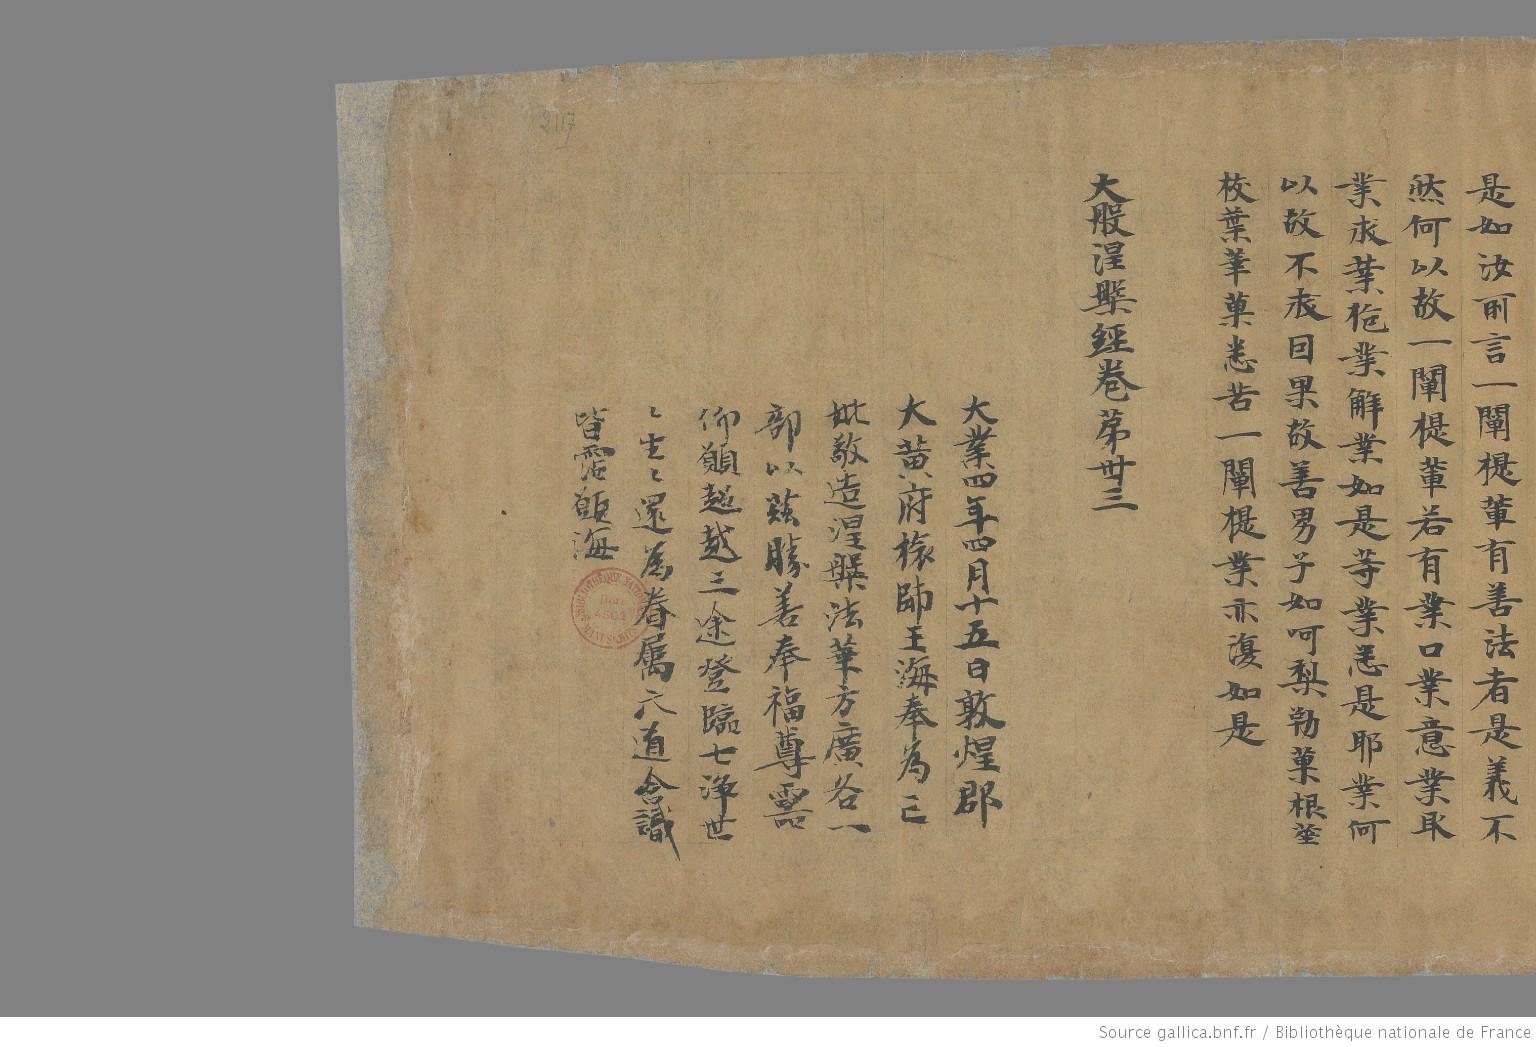 是如汝所言一闡提輩有善法者是義不
然何以故一闡提輩若有業口業意業取
業求業施業解業如是等業悉是耶業何
以故不求因果故善男子如呵梨勒菓根莖
枝葉華菓悉苦一闡提業亦復如是
大般涅槃經卷第卅三
大業四年四月十五日敦煌郡
大黃府旅帥王海奉為亡
妣敬造涅槃法華方廣各一
部以茲勝善奉福尊靈
仰願超越三途登臨七淨世
〻生〻還為眷屬六道含識
皆霑願海
2117
BIBLIOTHÈQUE NATIONALE MANUSCRITS
Don 4502
Source gallica.bnf.fr / Bibliothèque nationale de France